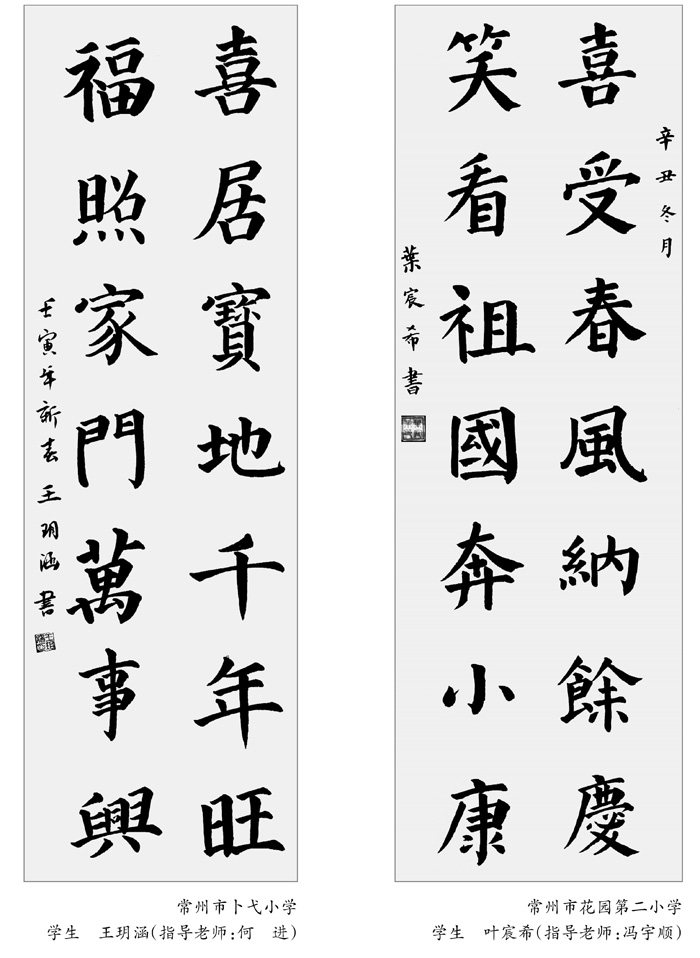 喜居寶地千年旺
福照家門萬事興
壬寅年新春王玥涵書
常州市卜弋小学
学生　王玥涵(指导老师:何　进)
辛丑冬月
喜受春風納餘慶
笑看祖國奔小康
葉宸希書
常州市花园第二小学
学生　叶宸希(指导老师:冯宇顺)